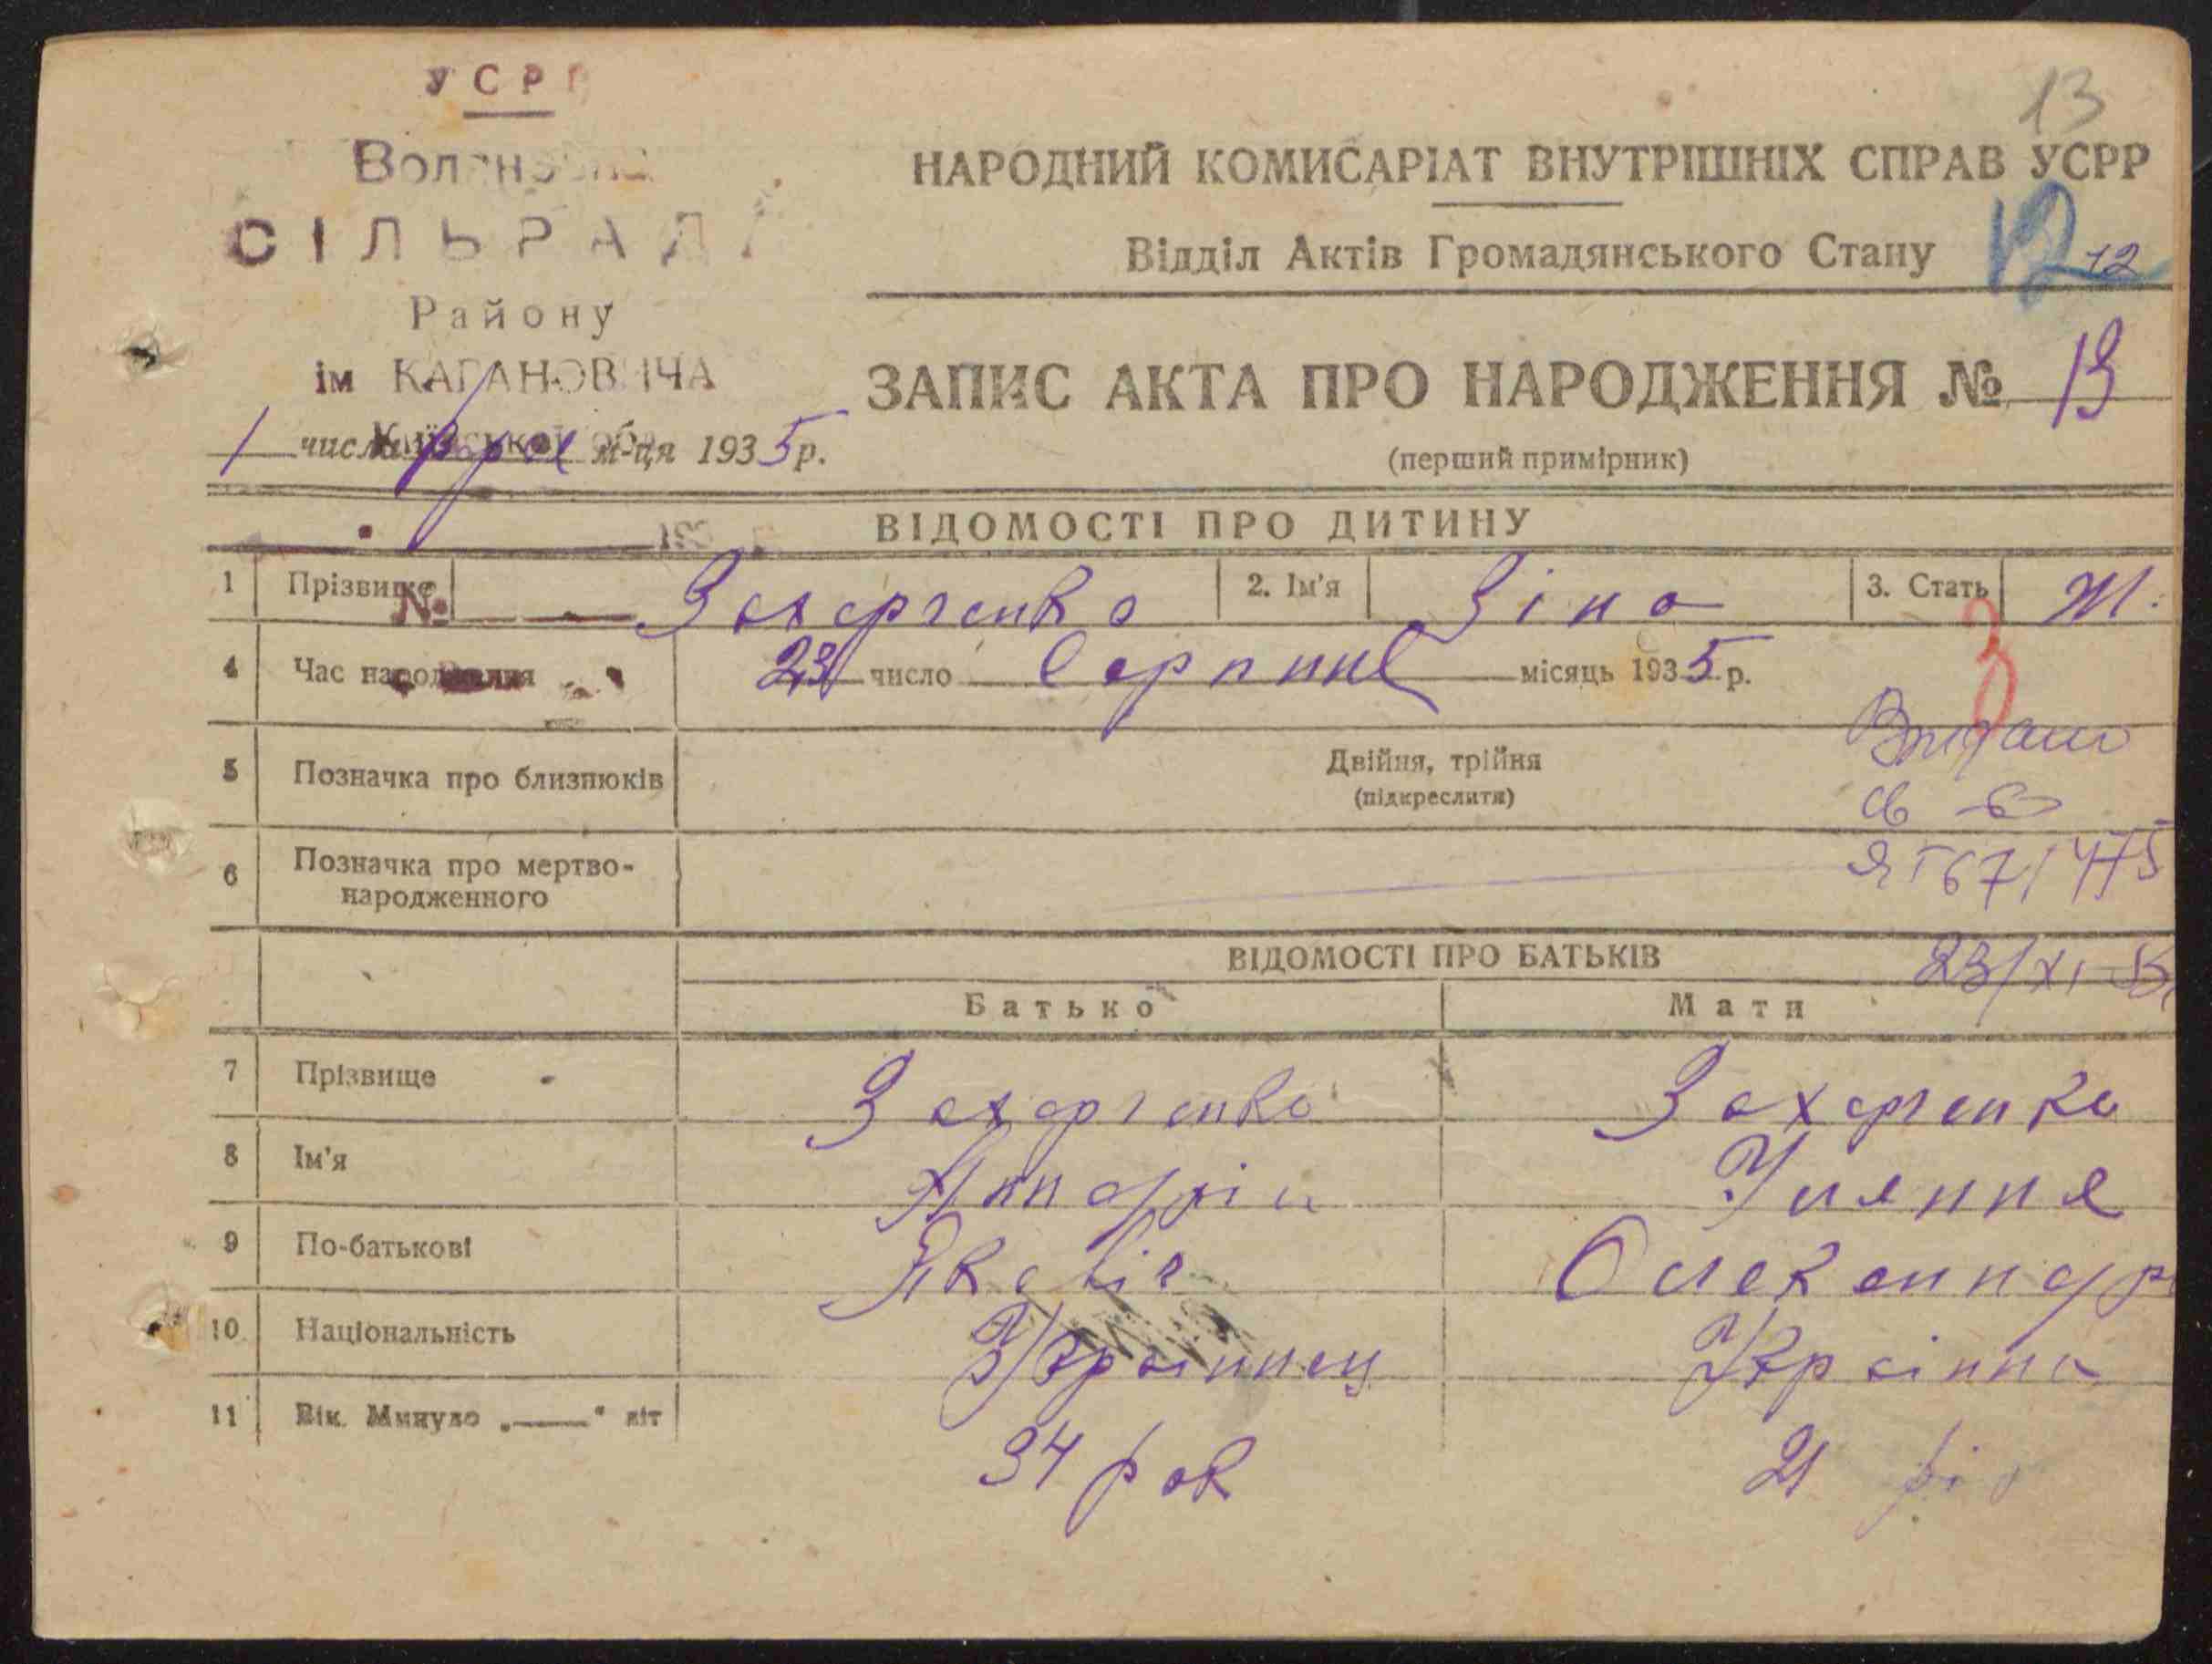 УСРР
СІЛЬРАДА
Району
ім КАГАНОВИЧА
Київської обл
1 числа м-ця 1935 р.
193
№
13
НАРОДНИЙ КОМИСАРІАТ ВНУТРІШНІХ СПРАВ УСРР
Відділ Актів Громадянського Стану
12 12
ЗАПИС АКТА ПРО НАРОДЖЕННЯ № 13
(перший примірник)
ВІДОМОСТІ ПРО ДИТИНУ
1 Прізвище Захарченко 2. Ім'я Зіна 3. Стать Ж.
4 Час народження 23 число Серпння місяць 1935 р.
3
5 Позначка про близнюків Двійня, трійня
(підкреслити)
Видано
св-во
6 Позначка про мертво-
народженного
ЯТ 671475
ВІДОМОСТІ ПРО БАТЬКІВ
23/XI
Батько Мати
7 Прізвище Захарченко Захарченко
8 Ім'я Анндрій Уляння
9 По-батькові Яковіч Олександр
10 Національність Українец Українка
11 Вік. Минуло „—" літ 34 рок 21 рік